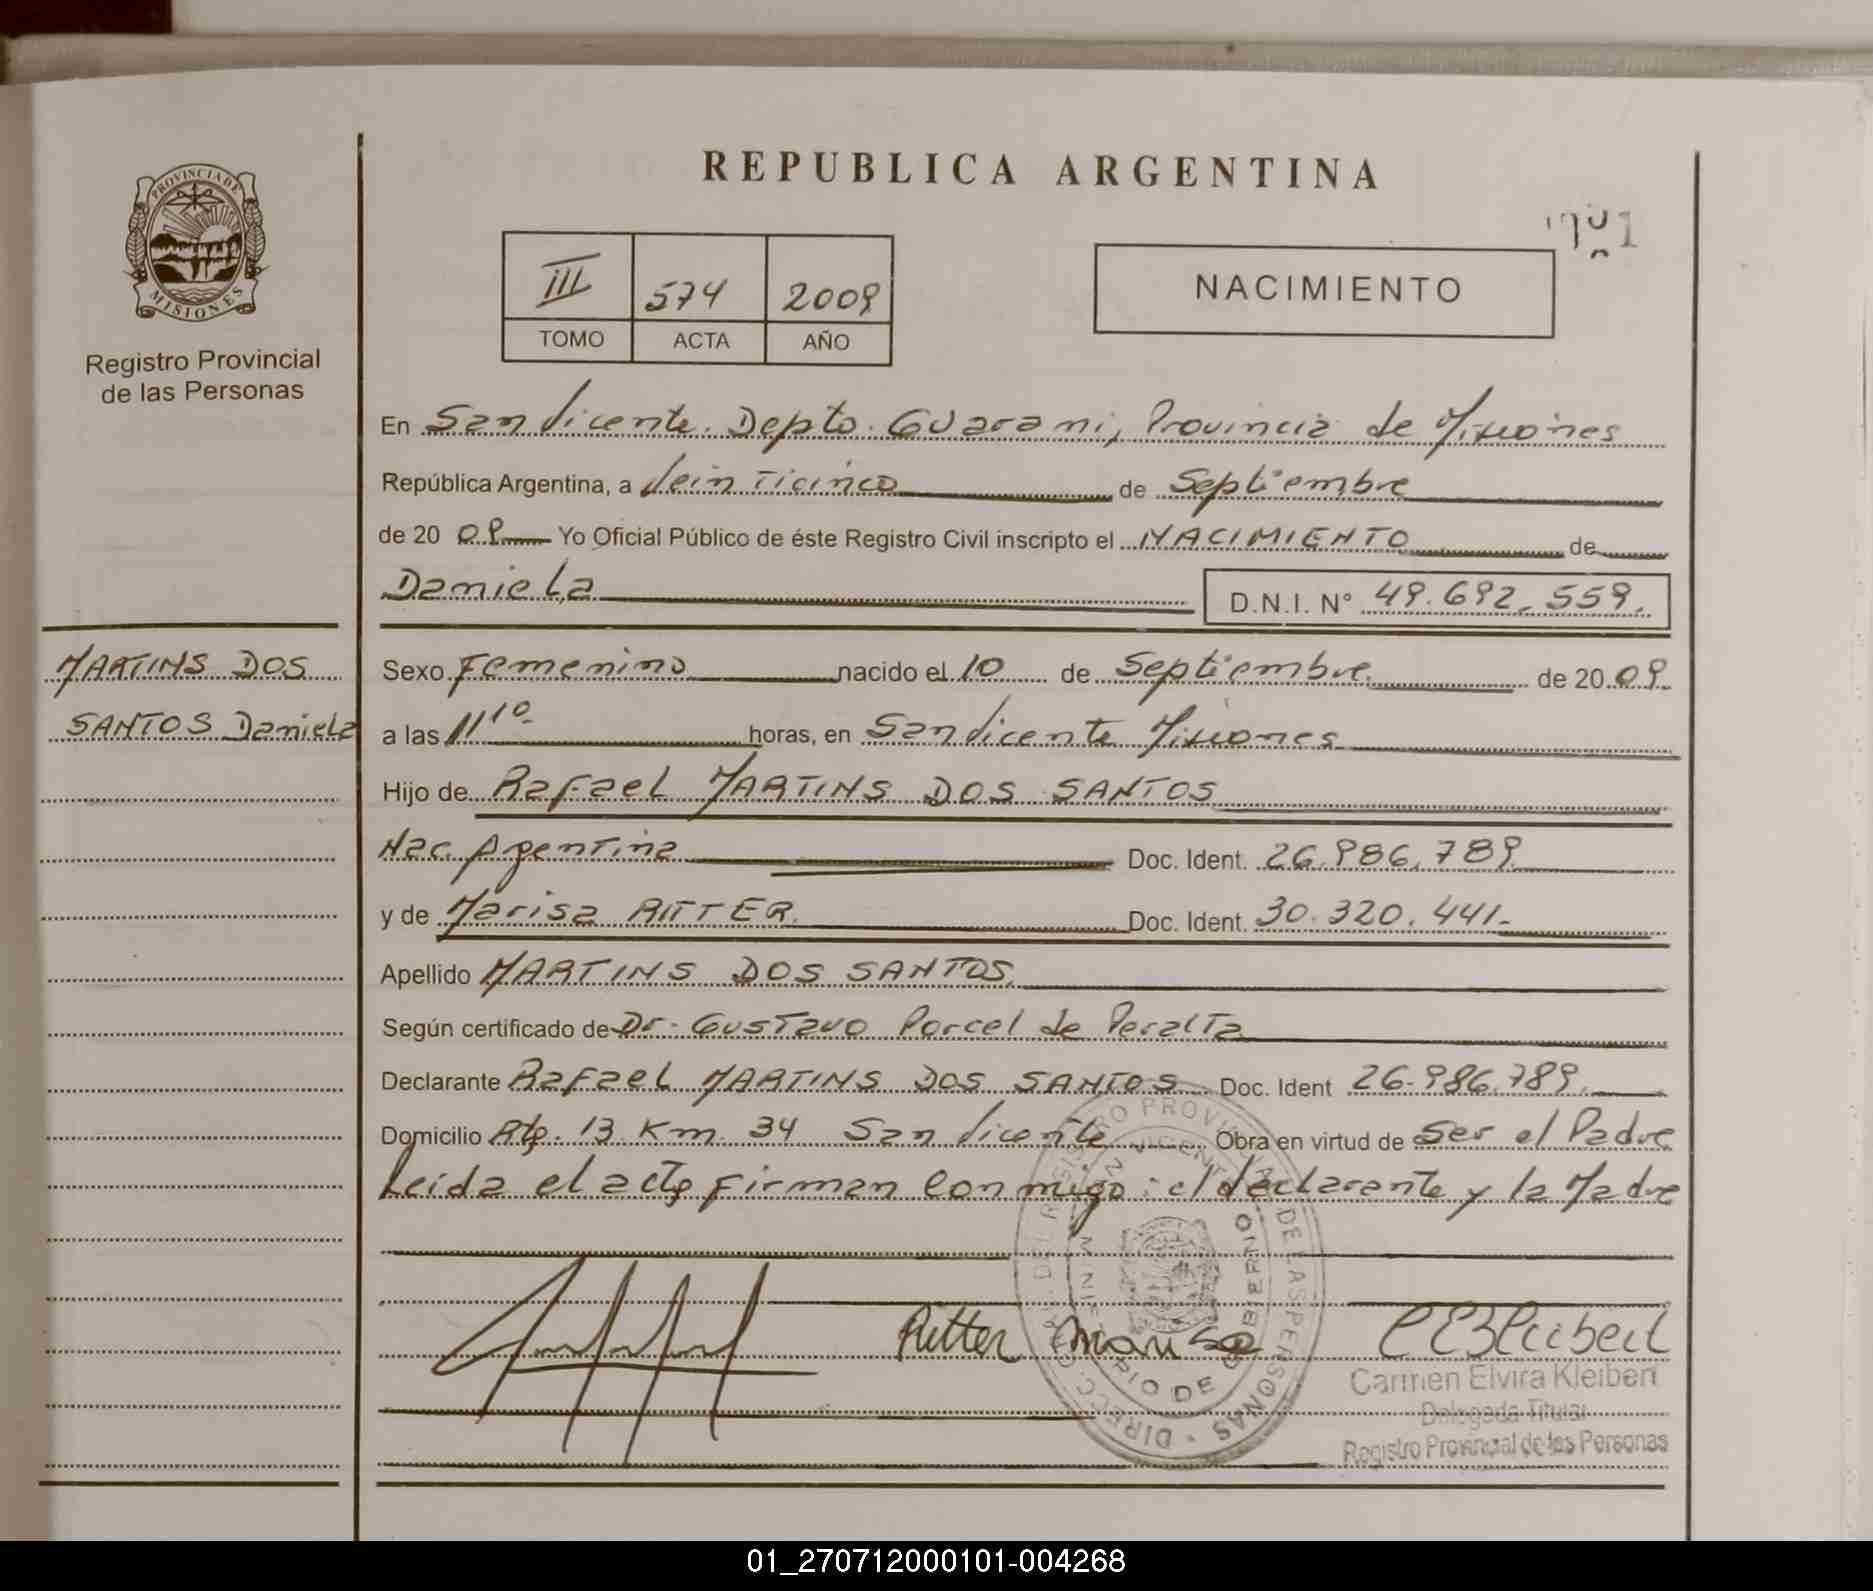 REPUBLICA ARGENTINA
PROVINCIA DE
MISIONES
Registro Provincial
de las Personas
III 574 2009
TOMO ACTA AÑO
NACIMIENTO
En San Vicente. Depto. Guarani, Provincia de Misiones
República Argentina, a Veinticinco de Septiembre
de 20 09 Yo Oficial Público de éste Registro Civil inscripto el NACIMIENTO de
Daniela D.N.I. N° 49.692.559.
MARTINS DOS
SANTOS Daniela
Sexo Femenino nacido el 10 de Septiembre de 20 09
a las 11 10 horas, en San Vicente Misiones
Hijo de Rafael MARTINS DOS SANTOS
Nac. Argentina Doc. Ident. 26.986.789
y de Marisa RITTER Doc. Ident. 30.320.441.
Apellido MARTINS DOS SANTOS
Según certificado de Dr. Gustavo Porcel de Peralta
Declarante Rafael MARTINS DOS SANTOS Doc. Ident 26.986.789.
Domicilio Rta. 13 Km 34 San Vicente Obra en virtud de Ser el Padre
Leida el acta firman conmigo: el declarante y la Madre
DIREC. GRAL. DEL REGISTRO PROVINCIAL DE LAS PERSONAS
MINISTERIO DE GOBIERNO
Ritter Marisa
Carmen Elvira Kleibert
Delegada Titular
Registro Provincial de las Personas
01_270712000101-004268